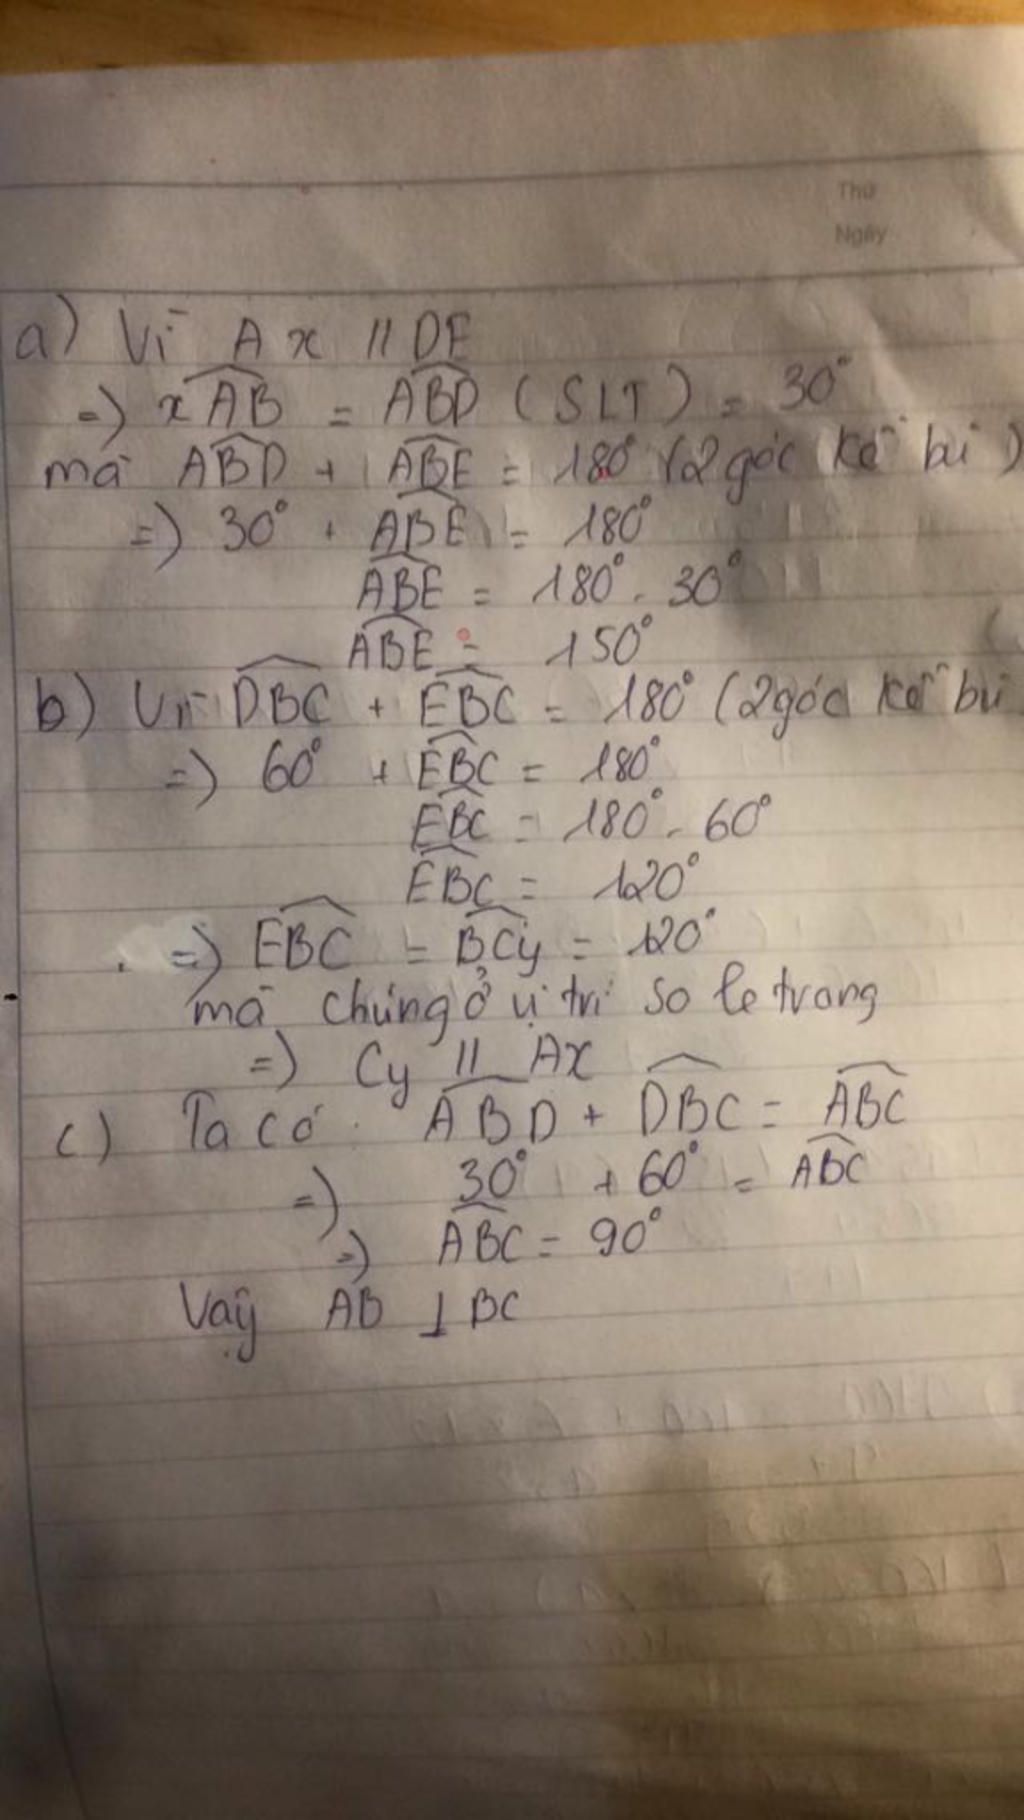 Thứ
Ngày
a) Vì Ax // DE
=) xAB = ABD (SLT) = 30°
mà ABD + ABE = 180° (2 góc kề bù)
=) 30° + ABE = 180°
ABE = 180° - 30°
ABE = 150°
b) Vì DBC + EBC = 180° (2 góc kề bù
=) 60° + EBC = 180°
EBC = 180° - 60°
EBC = 120°
=) EBC = BCy = 120°
mà chúng ở vị trí so le trong
=) Cy // Ax
c) Ta có: ABD + DBC = ABC
=) 30° + 60° = ABC
=) ABC = 90°
Vậy AB ⊥ BC